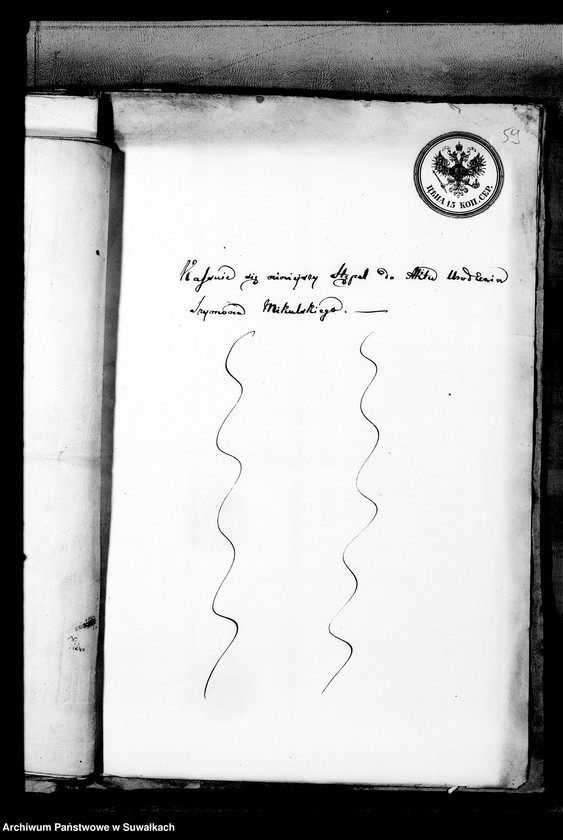 59
ЦѢНА 15 КОП. СЕР.
Kassuie się ninieyszy Stępel do Aktu Urodzenia
Szymona Mikulskiego. —
Archiwum Państwowe w Suwałkach